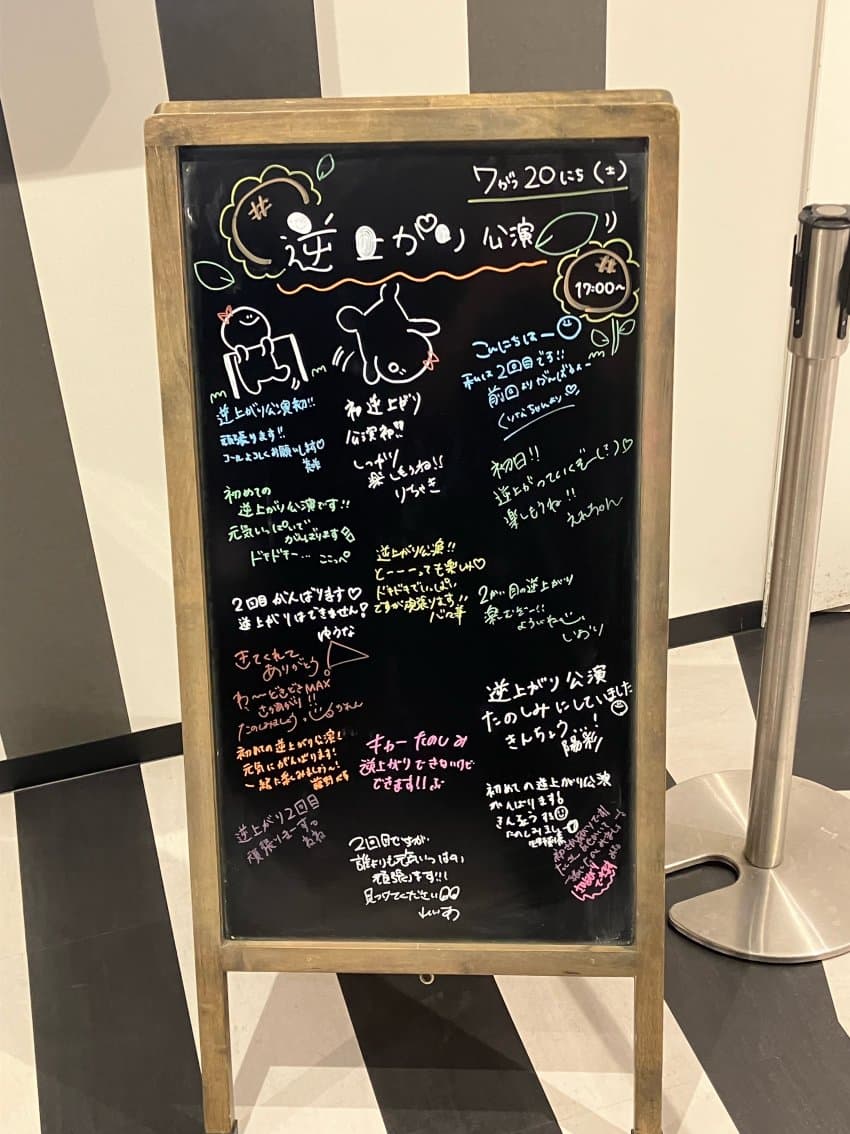 7がつ20にち(土)
逆上がり公演
17:00~
逆上がり公演初!!
頑張ります!!
コールよろしくお願いします♡
初逆上がり
公演初!!
しっかり
楽しもうね!!
りちゃき
こんにちはー
私は2回目です!!
前回よりがんばるんー
初日!!
逆上がっていくぞー
楽しもうね!!
初めての
逆上がり公演です!!
元気いっぱいで
がんばります
ドキドキー…
逆上がり公演!!
とーーーっても楽しみ♡
ドキドキでいっぱい
ですが頑張ります!!
2かい目の逆上がり
いおり
2回目がんばります♡
逆上がりはできません?
ゆうな
きてくれて
ありがとう。
わ〜どきどきMAX
さかあがり!!
たのしみましょう。
かれん
逆上がり公演
たのしみにしていました
きんちょう…!
陽彩
初めての逆上がり公演!
元気にがんばります!
一緒に楽しみましょ〜!
キャーたのしみ
逆上がりできないけど
できます!!
初めての逆上がり公演
がんばります!
きんちょうする
たのしみましょ
逆上がり2回目
頑張りまーす。
2回目ですが、
誰よりも元気いっぱい
頑張ります!!!
見つけてください